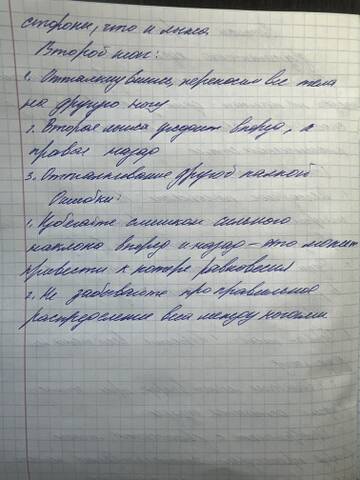 стороны, что и лыжа.
Второй шаг:
1. Оттолкнувшись, переносим вес тела
на другую ногу
2. Вторая лыжа уходит вперед, а
правая назад
3. Отталкивание другой палкой
Ошибки:
1. Избегайте слишком сильного
наклона вперед и назад – это может
привести к потере равновесия
2. Не забывайте про правильное
распределение веса между ногами